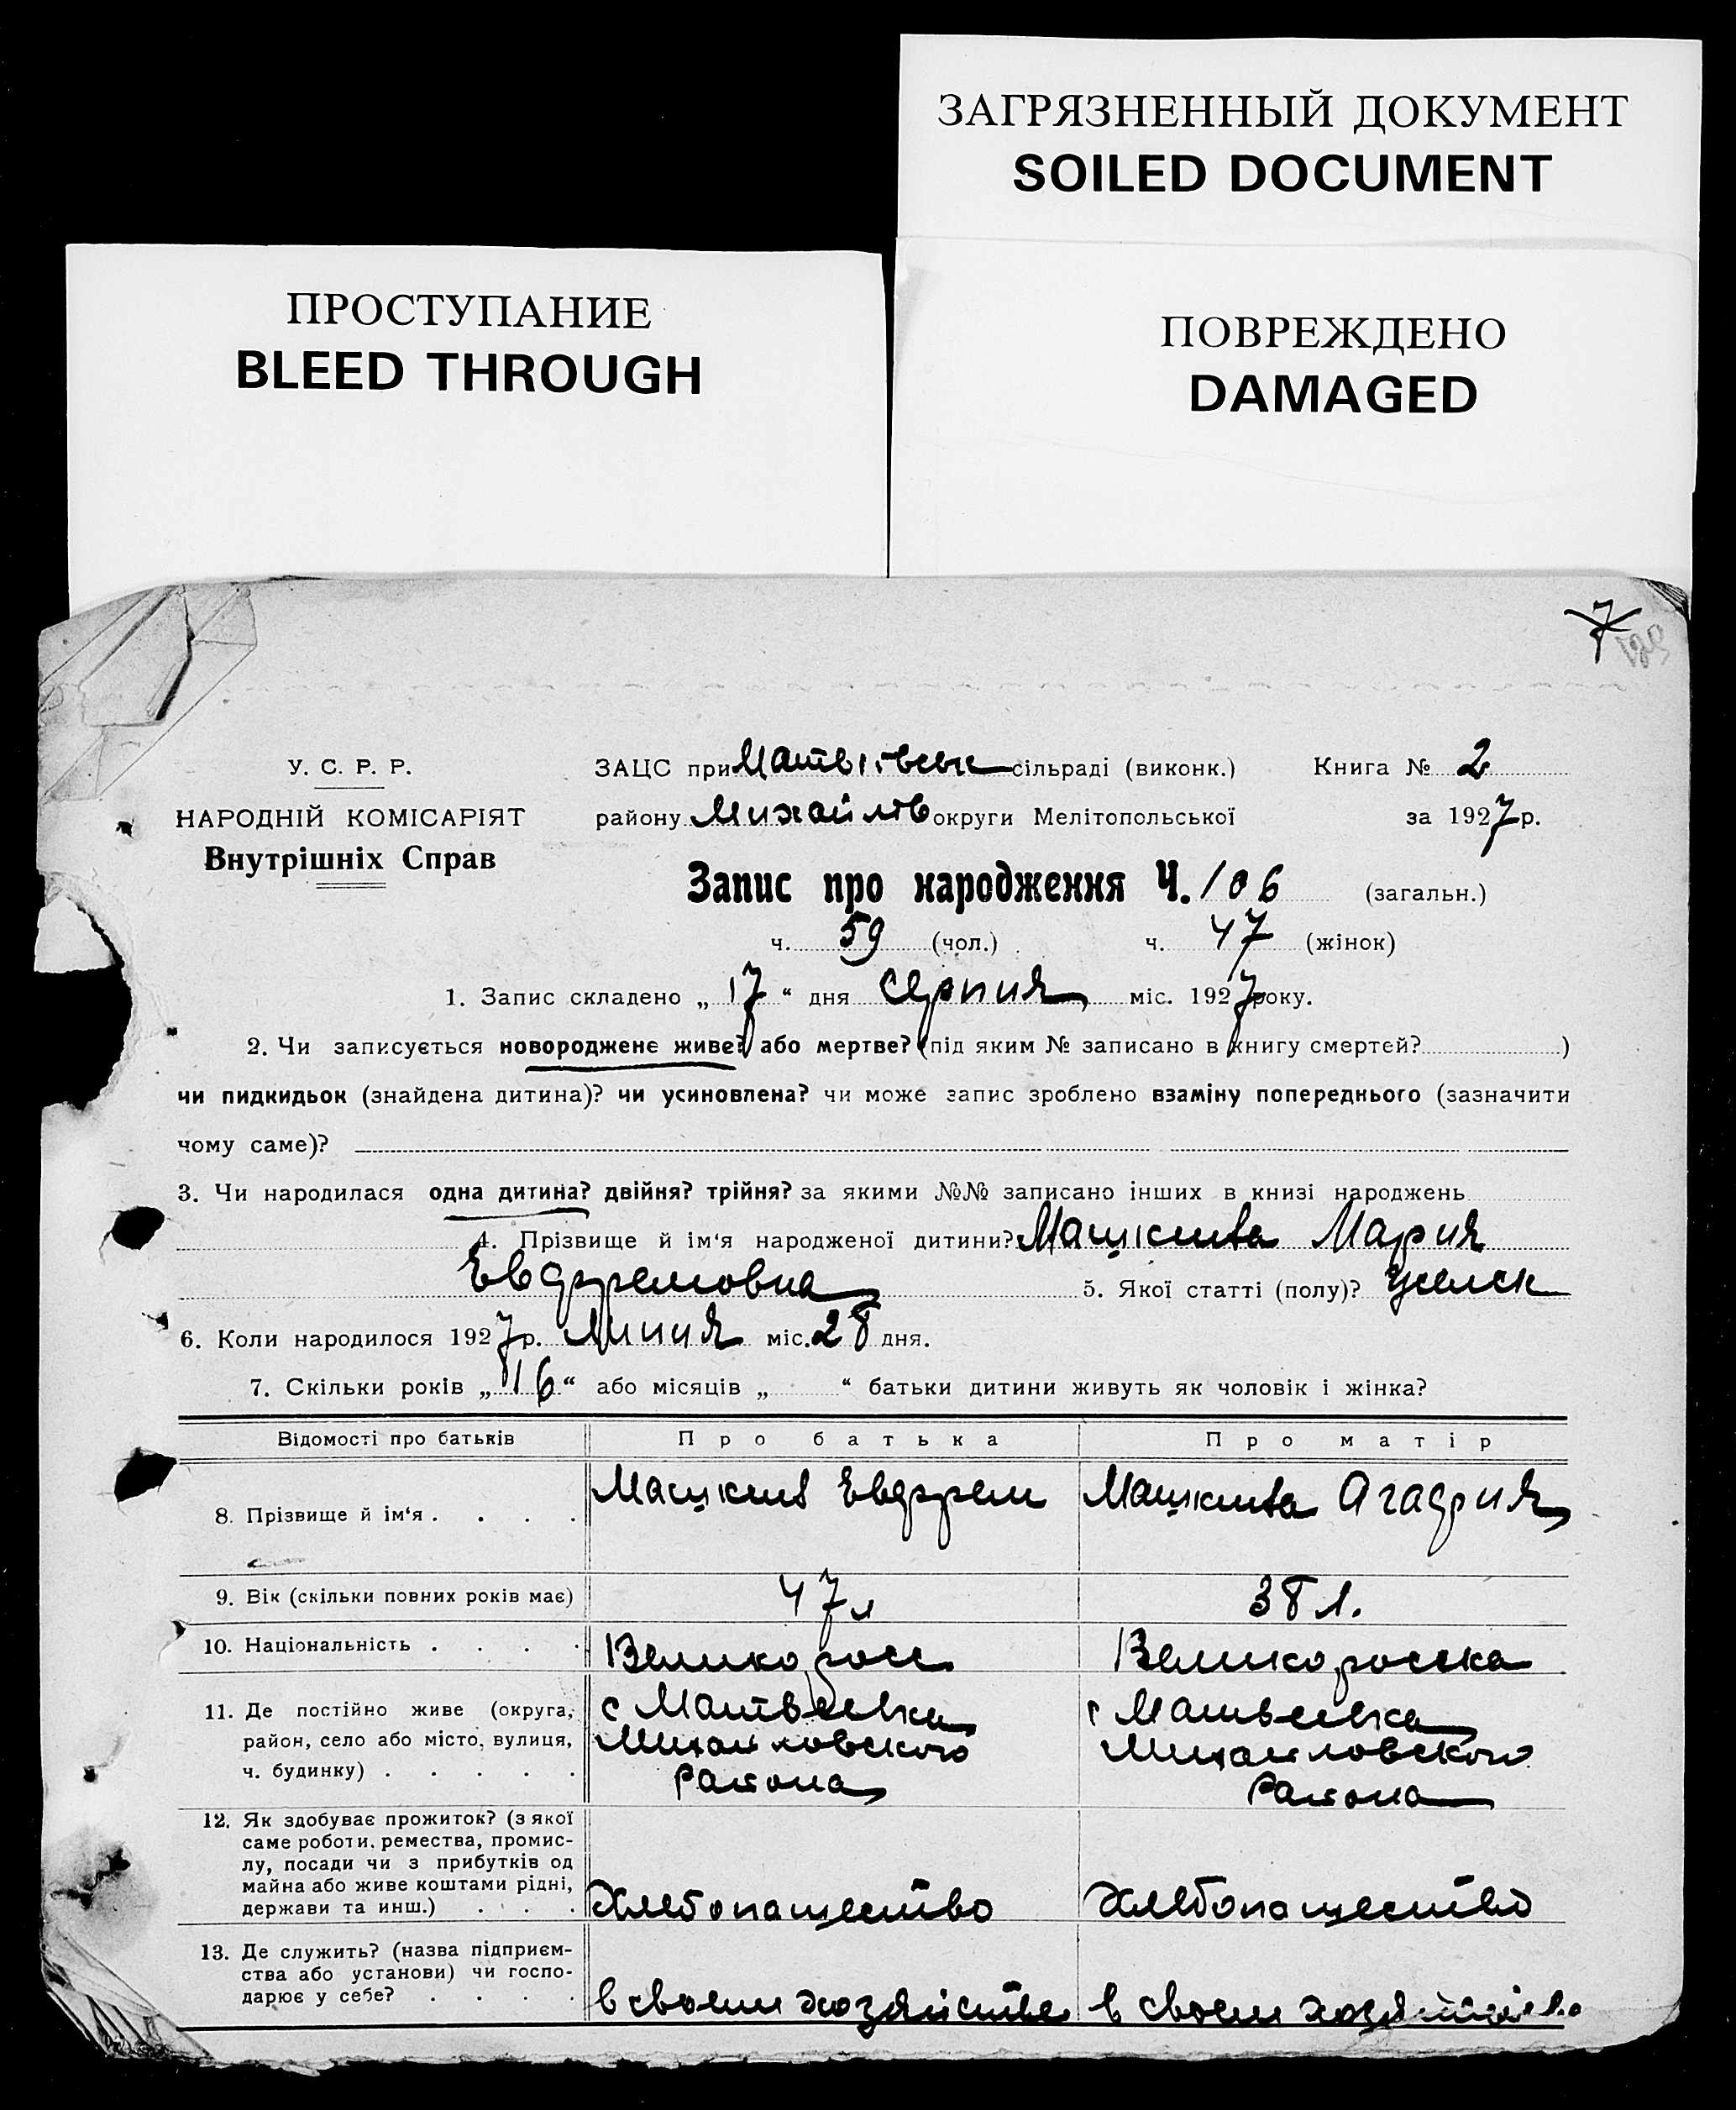 ЗАГРЯЗНЕННЫЙ ДОКУМЕНТ
SOILED DOCUMENT
ПРОСТУПАНИЕ
BLEED THROUGH
ПОВРЕЖДЕНО
DAMAGED
7
У. С. Р. Р.
НАРОДНІЙ КОМІСАРІЯТ
Внутрішніх Справ
ЗАЦС при Матвіївськ сільраді (виконк.) Книга № 2
району Михайлів округи Мелітопольської за 1927 р.
Запис про народження Ч. 106 (загальн.)
ч. 59 (чол.) ч. 47 (жінок)
1. Запис складено „ 17 “ дня Серпня міс. 1927 року.
2. Чи записується новороджене живе? або мертве? (під яким № записано в книгу смертей? )
чи пидкидьок (знайдена дитина)? чи усиновлена? чи може запис зроблено взаміну попереднього (зазначити
чому саме)?
3. Чи народилася одна дитина? двійня? трійня? за якими №№ записано інших в книзі народжень
4. Прізвище й ім‘я народженої дитини? Мария
5. Якої статті (полу)? женск
6. Коли народилося 1927 р. Липня міс. 28 дня.
7. Скільки років „ 16 “ або місяців „ “ батьки дитини живуть як чоловік і жінка?
Відомості про батьків Про батька Про матір
8. Прізвище й ім‘я . . . .
9. Вік (скільки повних років має) 47 л 38 л.
10. Національність . . . . Великоросс Великоросска
11. Де постійно живе (округа, с Матвеевка с Матвеевка
район, село або місто, вулиця, Михайловского Михайловского
ч. будинку) . . . . . Района Района
12. Як здобуває прожиток? (з якої
саме роботи, ремества, промис-
лу, посади чи з прибутків од
майна або живе коштами рідні,
держави та инш.) . . . Хлебопашество Хлебопашество
13. Де служить? (назва підприєм-
ства або установи) чи госпо-
дарює у себе? . . . . в своем хозяйстве в своем хозяйстве